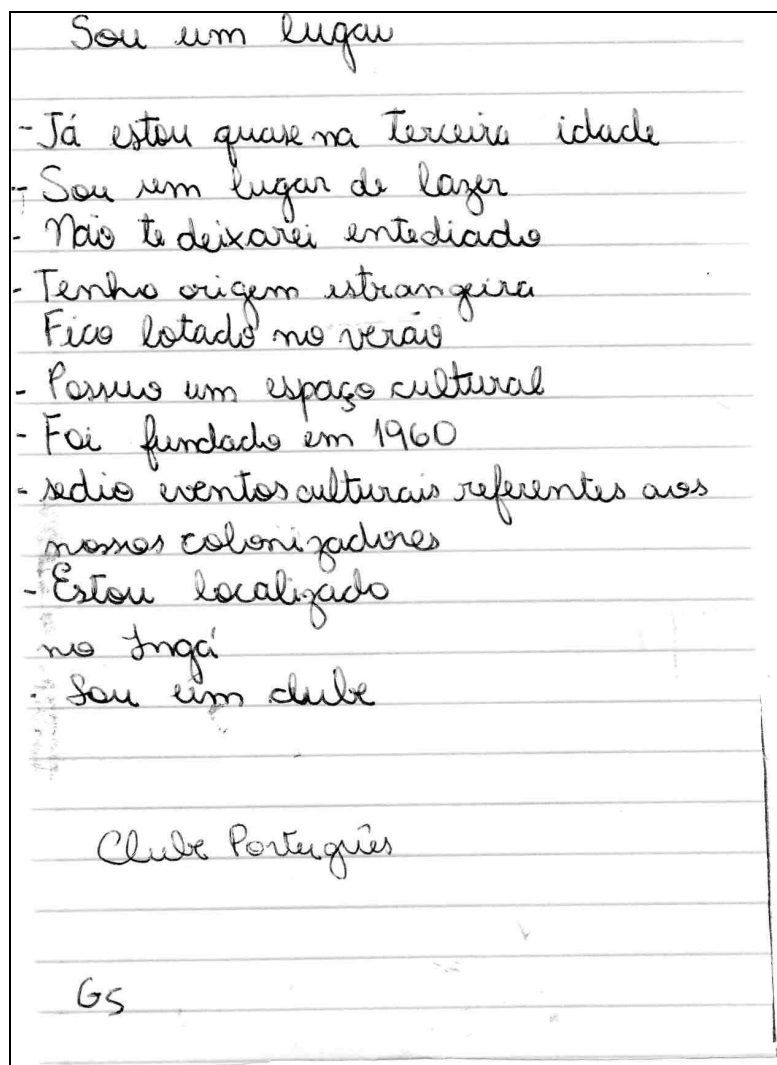 Sou um lugar
- Já estou quase na terceira idade
- Sou um lugar de lazer
- Não te deixarei entediado
- Tenho origem estrangeira
Fico lotado no verão
- Possuo um espaço cultural
- Foi fundado em 1960
- sedio eventos culturais referentes aos
nossos colonizadores
- Estou localizado
no Ingá
- Sou um clube
Clube Português
GS